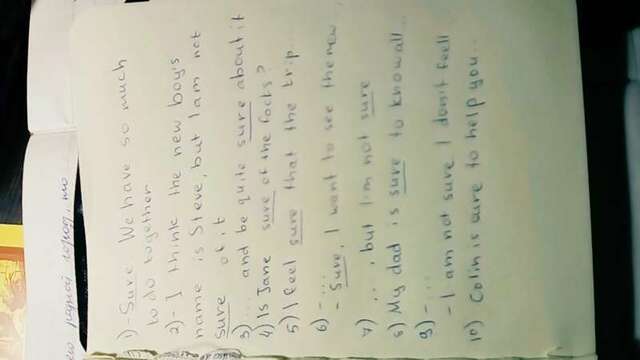 1) Sure We have so much
to do together
2) - I think the new boy's
name is Steve, but I am not
sure of it
3) ... and be quite sure about it
4) Is Jane sure of the facts?
5) I feel sure that the trip
6) - ...
- Sure, I want to see the new
7) ..., but I'm not sure
8) My dad is sure to know all...
9) - ...
- I am not sure I don't feel
10) Colin is sure to help you...